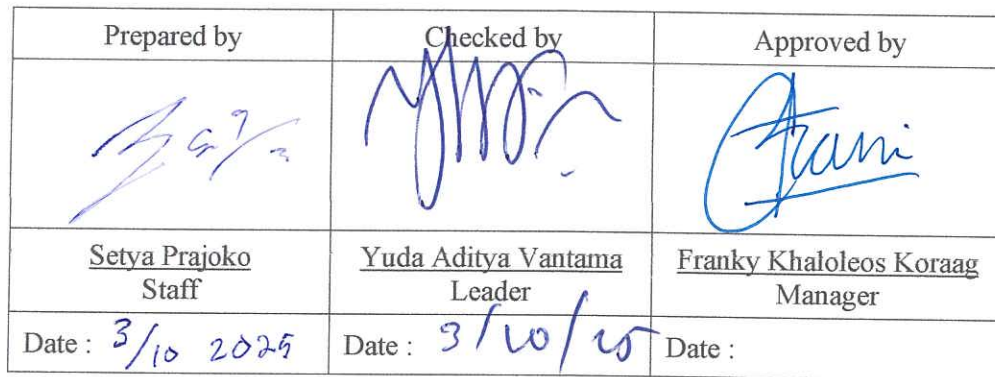 Prepared by
Checked by
Approved by
Setya Prajoko
Staff
Yuda Aditya Vantama
Leader
Franky Khaloleos Koraag
Manager
Date : 3/10 2025
Date : 3/10/25
Date :